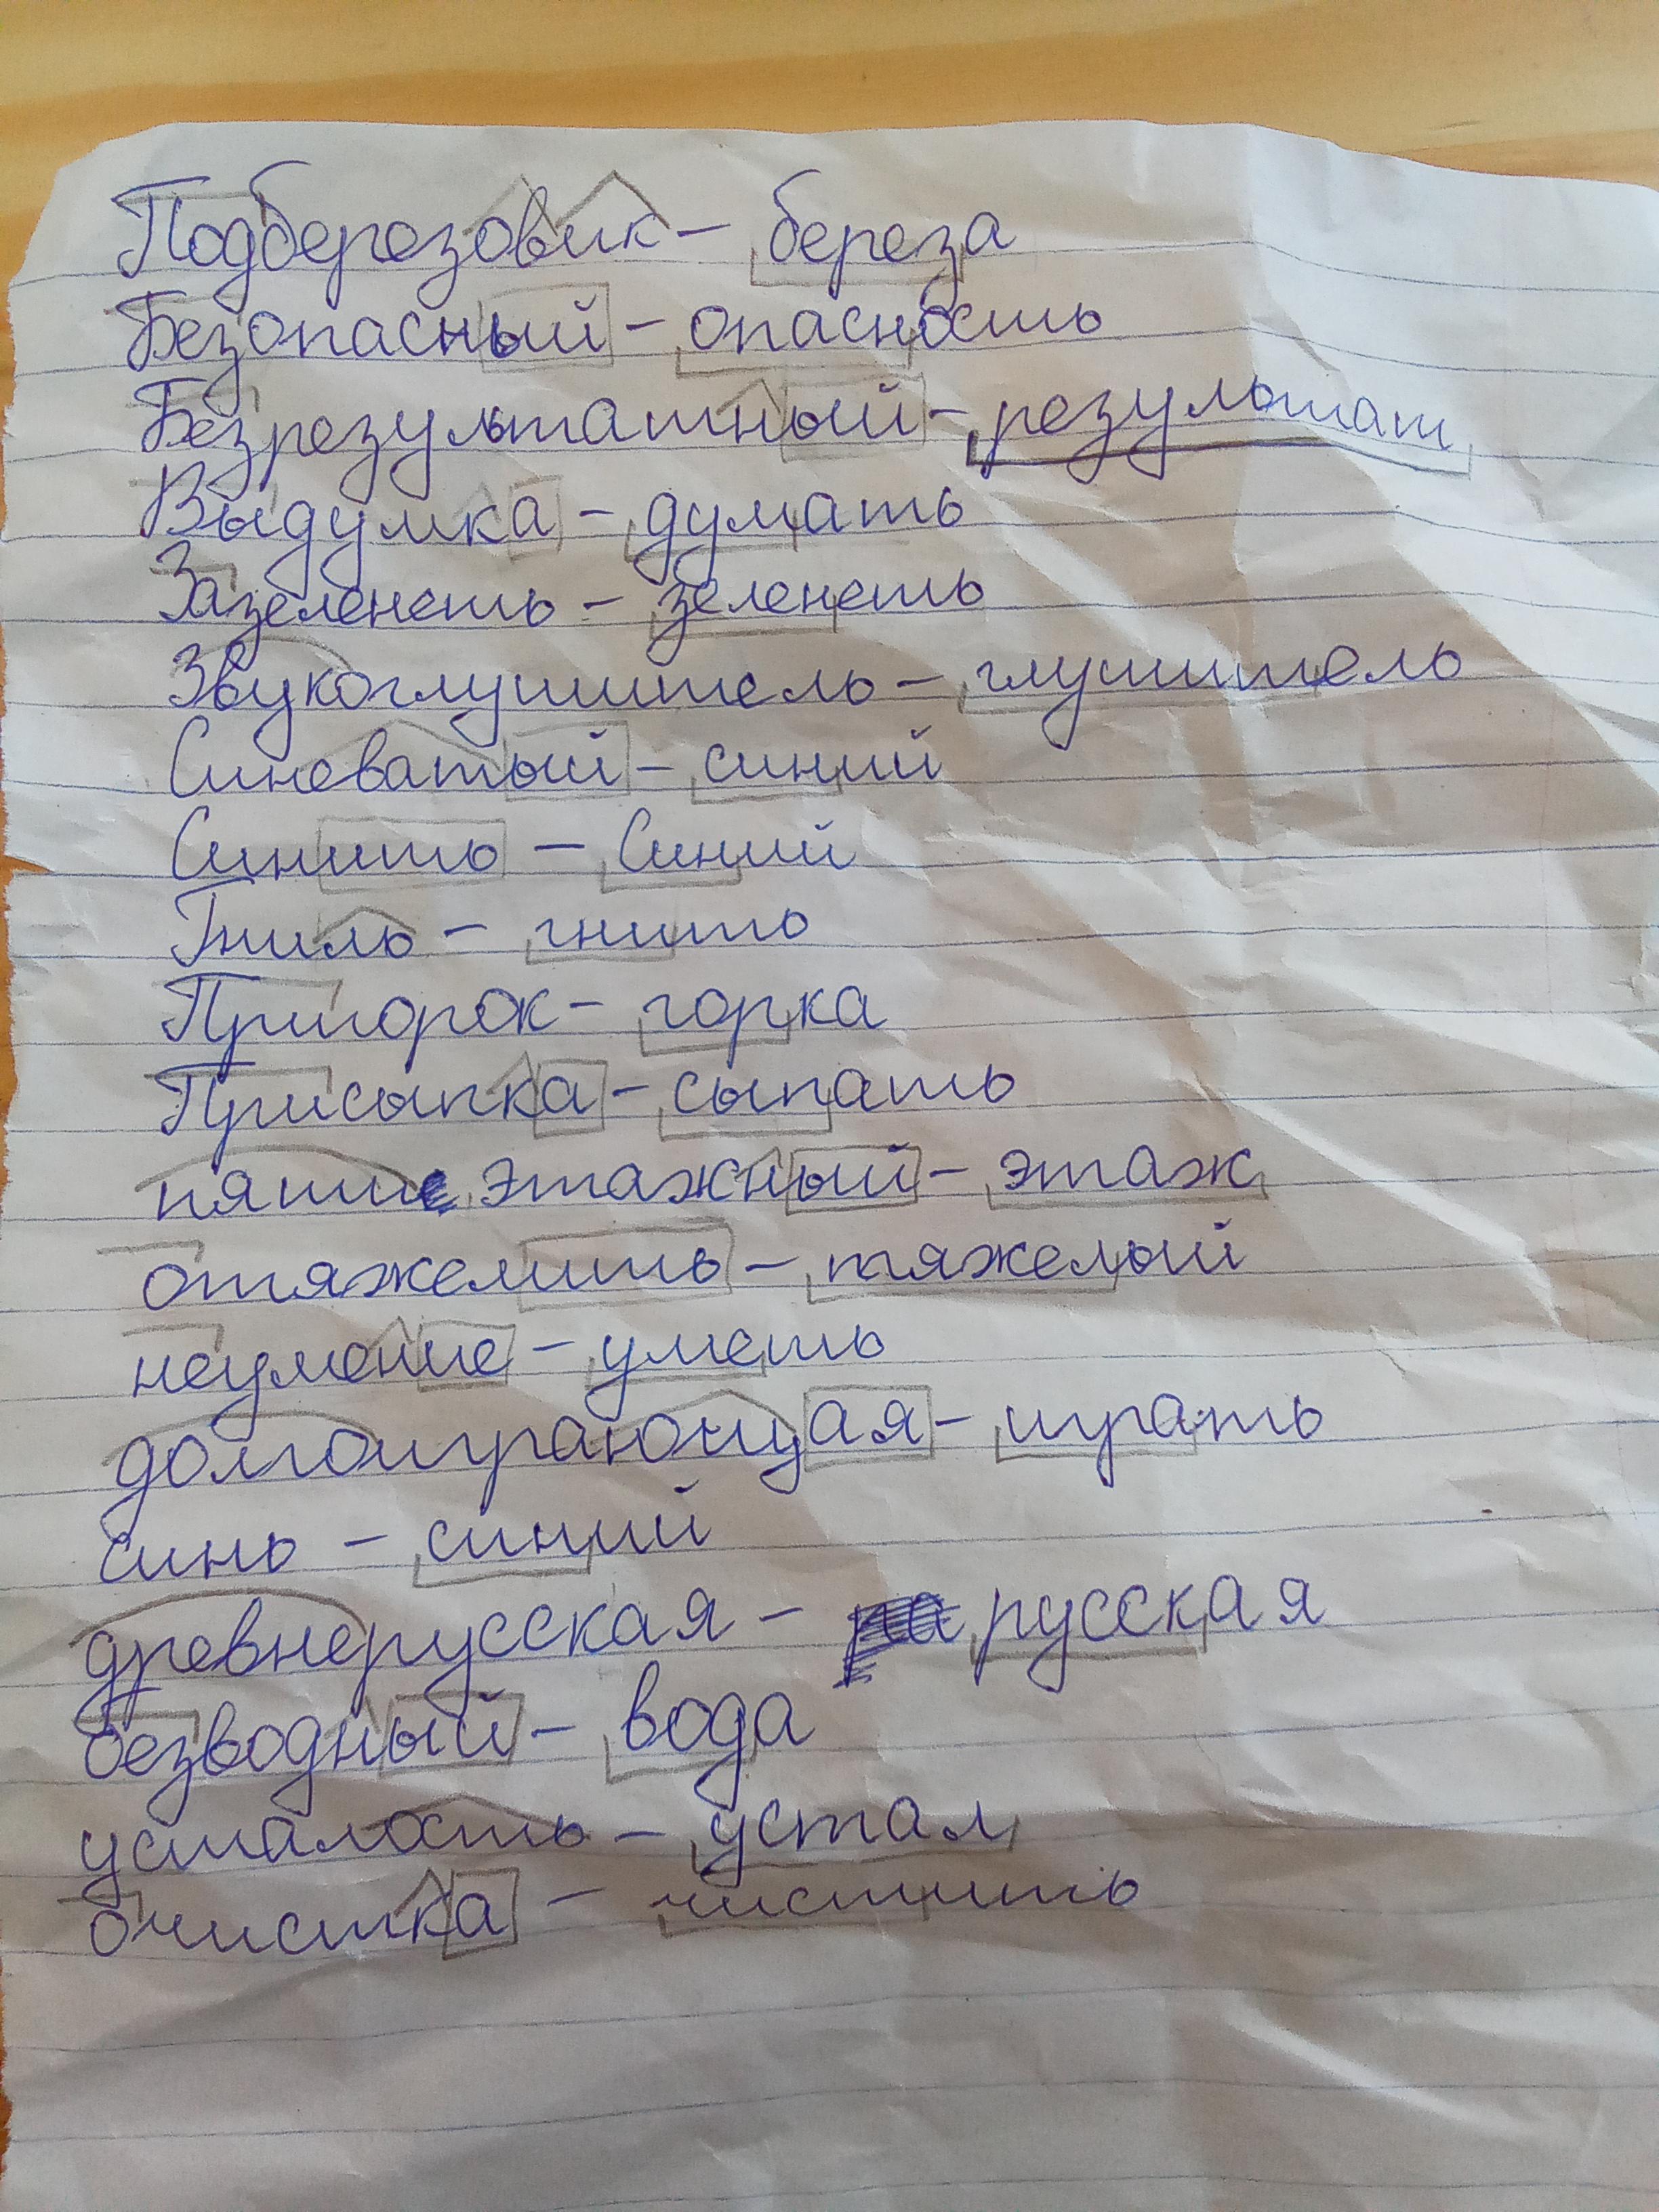 Подберезовик – береза
Безопасный – опасность
Безрезультатный – результат
Выдумка – думать
Зазеленеть – зеленеть
Звукоглушитель – глушитель
Синеватый – синий
Синить – Синий
Гниль – гнить
Пригорок – горка
Присыпка – сыпать
пяти этажный – этаж
отяжелить – тяжелый
неумение – уметь
долгоиграющая – играть
синь – синий
древнерусская – русская
безводный – вода
усталость – устал
очистка – чистить